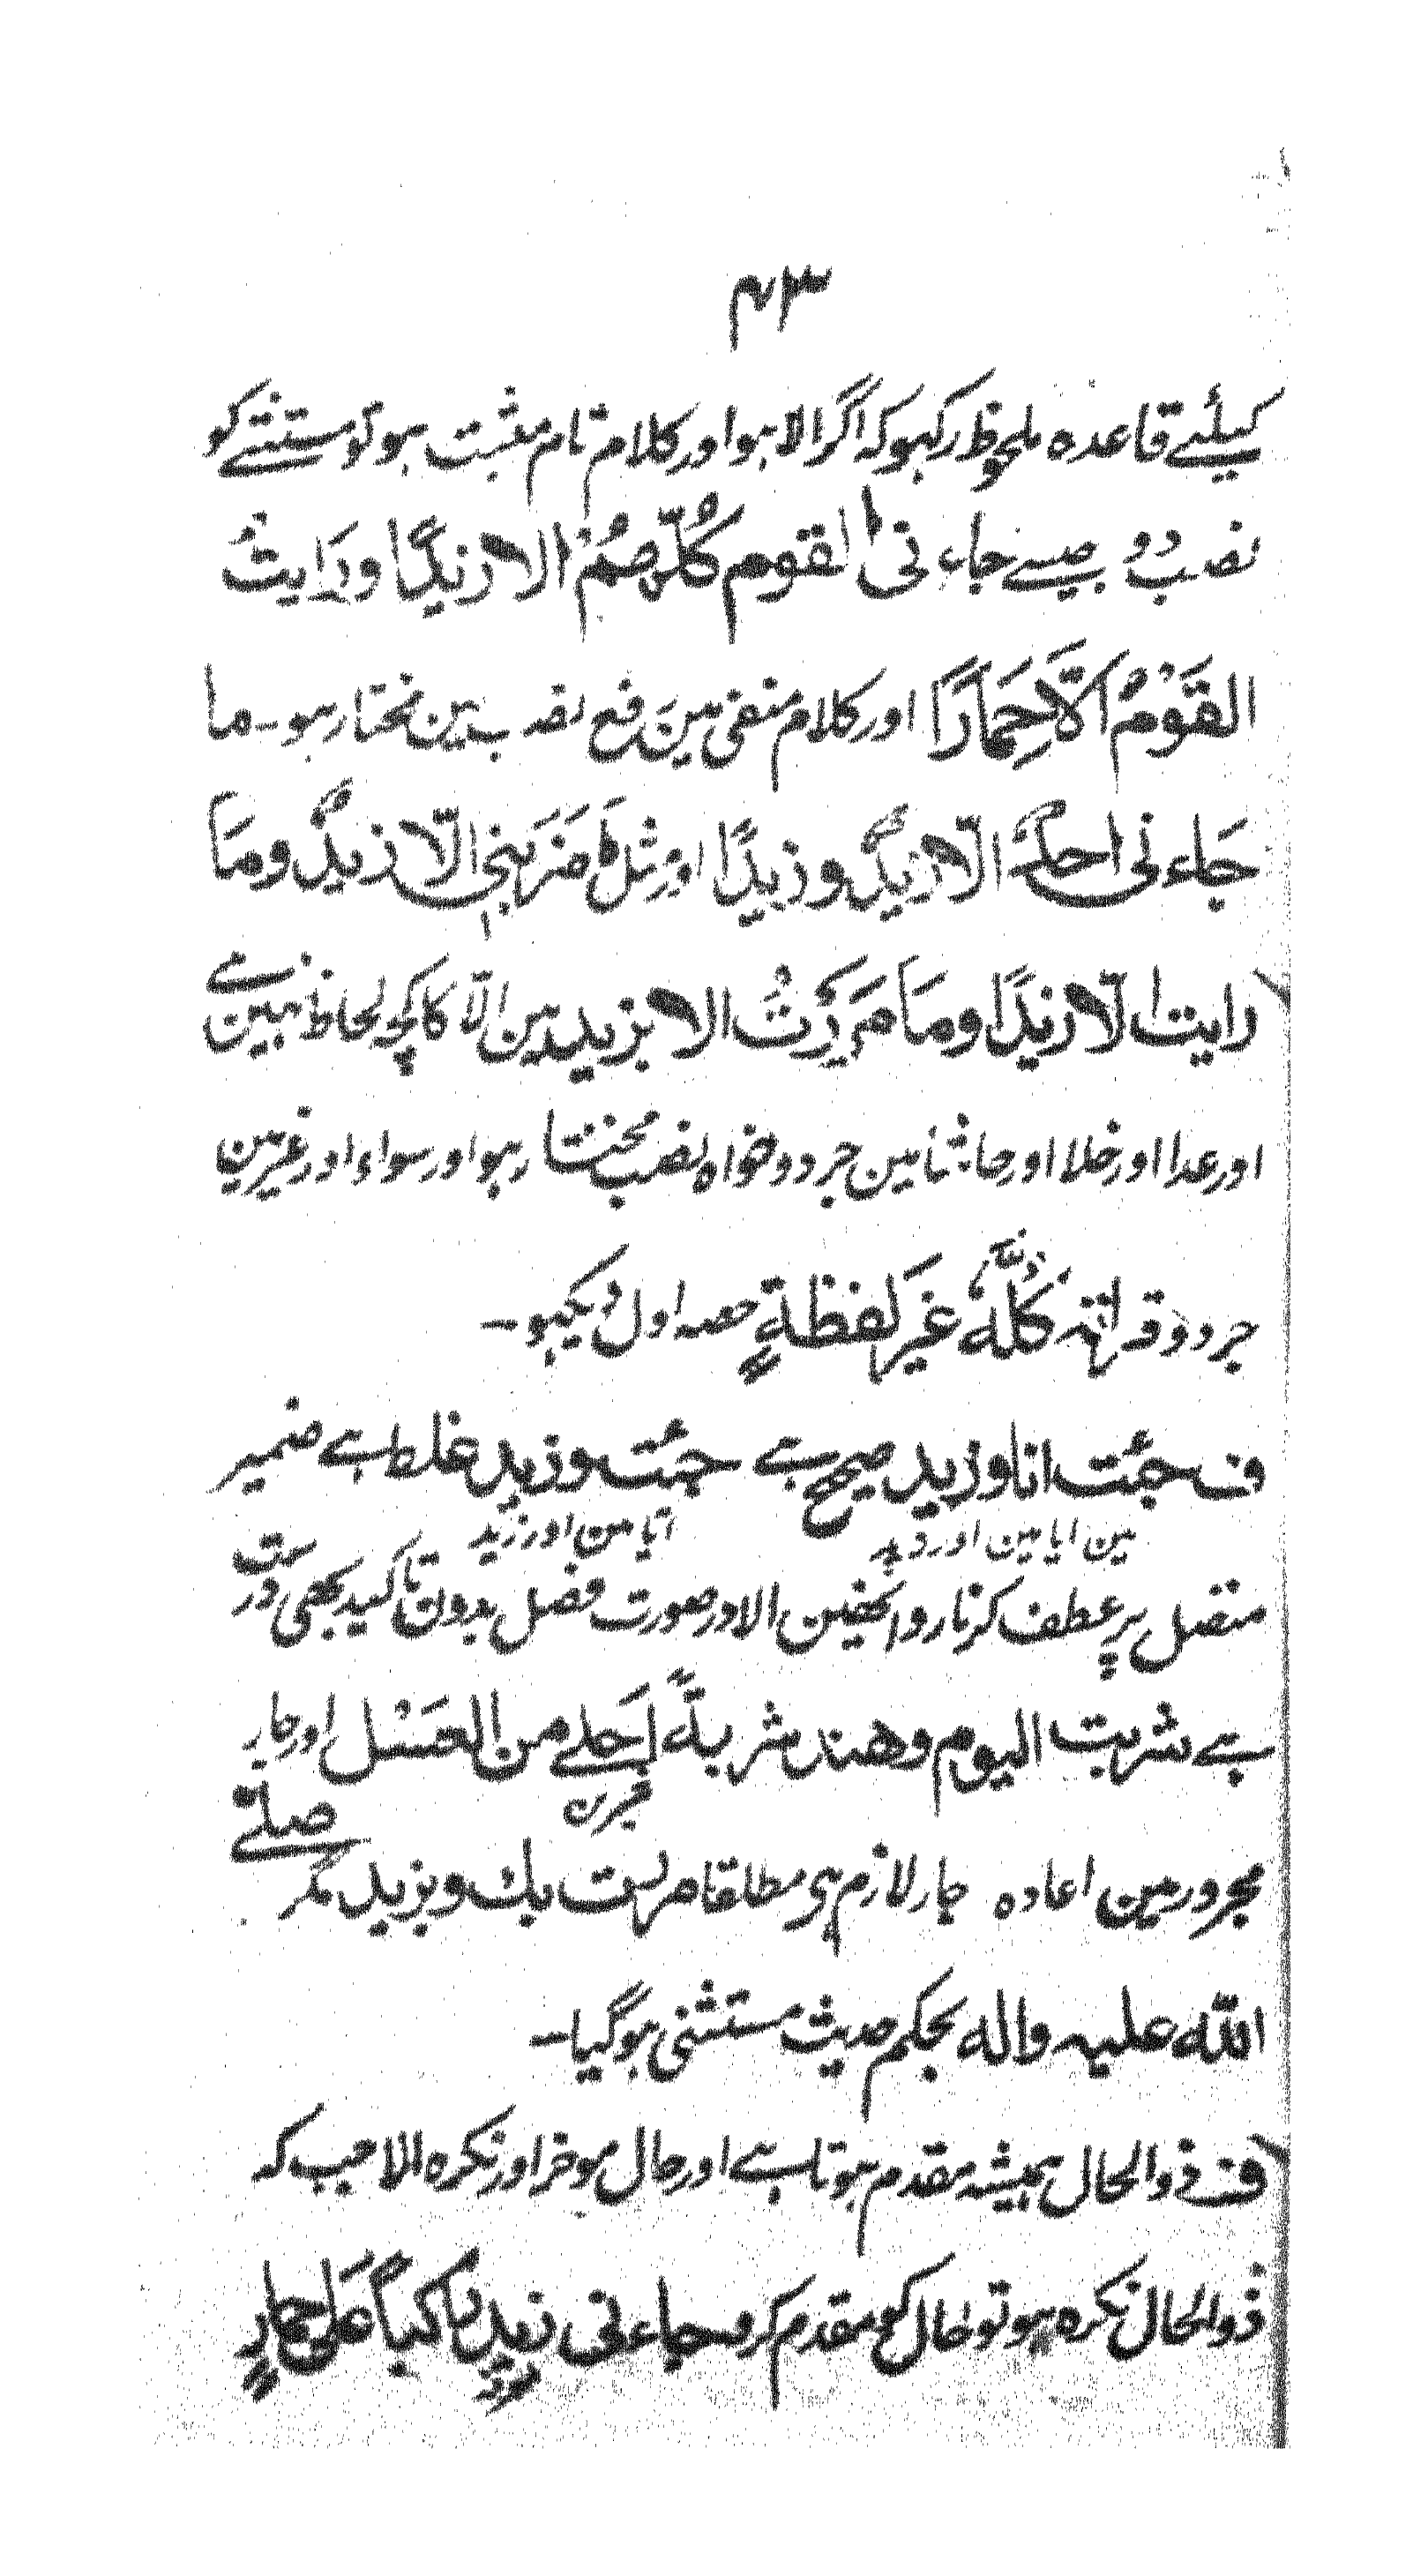 ۴۳
کیلئے قاعدہ ملحوظ رکہو کہ اگر الا ہوا ور کلام تام مثبت ہو تو مستثنے کو
نصب دو جیسے جاء نی القوم کُلّھمُ الا زیدًا و رایتُ
القَوْمُ الّاحِمَارًا اور کلام منفی مین رفع نصب مین مختار ہو۔ ما
جَاء نی احدٌ الّا زیدٌ و زیدًا اور مثل مَا ضَرَبنی الّا زیدٌ ومَا
رایت الّا زیدًا ومَا مَرَرْتُ الا بزید مین الّا کا کچہ لحاظ نہین ہے
اور عدا اور خلا اور حاشا مین جر دو خواہ نصب مختار ہوا ور سواء اور غیر مین
جر دو کُلّہٗ غَیرَ لفظۃٍ حصہ اول دیکہو۔
ف جئت انا وزید صحیح ہے جئت وزید غلط ہے ضمیر
مین آیا مین اور زید آیا من اور زید
متصل پر عطف کرنا روا نھین الا در صورت فصل بدون تاکید بھی درست
ہے شربت الیوم وھند شربۃً احلے من العَسْل اور جار
مجرور مین اعادہ جار لازم ہی مطلقا مررت بك وبزید مگر صلے
اللّٰہ علیہ والہ بحکم حدیث مستثنی ہوگیا۔
ف ذوالحال ہمیشہ مقدم ہوتا ہے اور حال موخر اور نکرہ الا جب کہ
ذوالحال نکرہ ہو تو حال کو مقدم کرو جاءنی زید راکباً عَلٰی حمارٍ